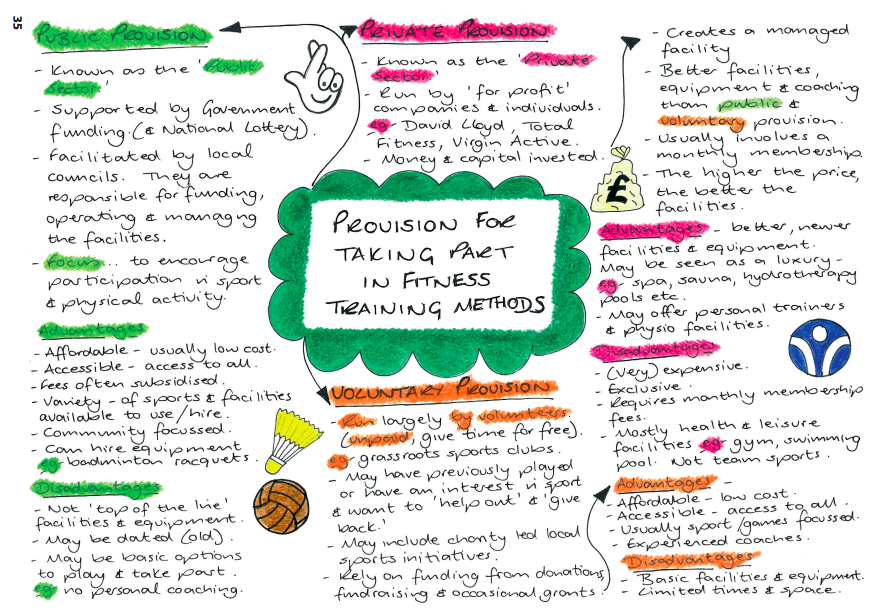 35
PUBLIC PROVISION
- Known as the 'Public
Sector'
- Supported by Government
funding. (& National Lottery).
- Facilitated by local
councils. They are
responsible for funding,
operating & managng
the facilities.
- Focus... to encourage
participation in sport
& physical activity.
Advantages
- Affordable - usually low cost.
- Accessible - access to all.
- Fees often subsidised.
- Variety - of sports & facilities
available to use/hire.
- Community focussed.
- Can hire equipment
eg badminton racquets.
Disadvantages
- Not 'top of the line'
facilities & equipment.
- May be dated (old).
- May be basic options
to play & take part.
eg no personal coaching.
PRIVATE PROVISION
- Known as the 'Private
Sector'
- Run by 'for profit'
companies & individuals.
eg - David Lloyd, Total
Fitness, Virgin Active.
- Money & capital invested.
PROVISION FOR
TAKING PART
IN FITNESS
TRAINING METHODS
VOLUNTARY PROVISION
- Run largely by volunteers
(unpaid, give time for free).
eg - grassroots sports clubs.
- May have previously played
or have an interest in sport
& want to 'help out' & 'give
back.'
- May include charity led local
sports initiatives.
- Rely on funding from donations,
fundraising & occasional grants.
- Creates a managed
facility
- Better facilities,
equipment & coaching
than public &
voluntary provision.
- Usually involves a
monthly membership.
- The higher the price,
the better the
facilities.
£
Advantages - better, newer
facilities & equipment.
May be seen as a luxury -
eg - spa, sauna, hydrotherapy
pools etc.
- May offer personal trainers
& physio facilities.
Disadvantages
- (Very) expensive.
- Exclusive.
- Requires monthly membership
fees.
- Mostly health & leisure
facilities eg gym, swimming
pool. Not team sports.
Advantages -
- Affordable - low cost.
- Accessible - access to all.
- Usually sport/games focussed.
- Experienced coaches.
Disadvantages
- Basic facilities & equipment.
- Limited times & space.